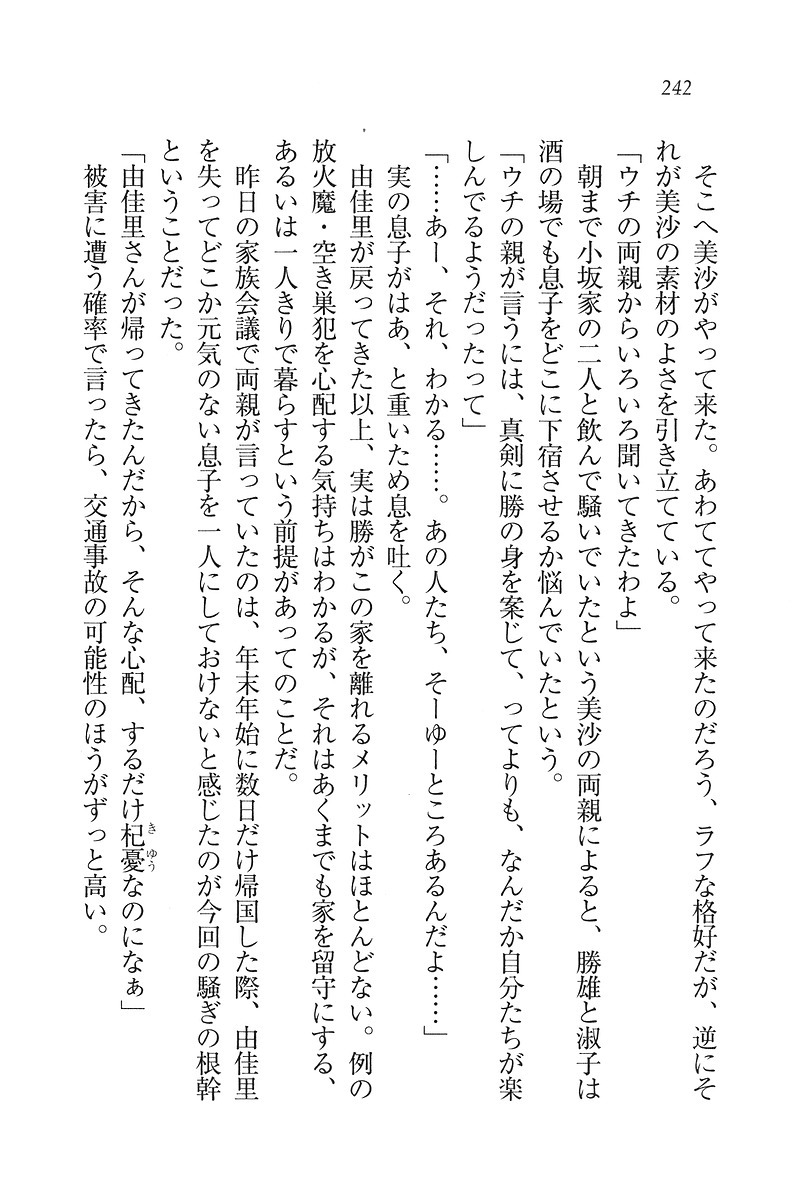 242
そこへ美沙がやって来た。あわててやって来たのだろう、ラフな格好だが、逆にそ
れが美沙の素材のよさを引き立てている。
「ウチの両親からいろいろ聞いてきたわよ」
朝まで小坂家の二人と飲んで騒いでいたという美沙の両親によると、勝雄と淑子は
酒の場でも息子をどこに下宿させるか悩んでいたという。
「ウチの親が言うには、真剣に勝の身を案じて、ってよりも、なんだか自分たちが楽
しんでるようだったって」
「……あー、それ、わかる……。あの人たち、そーゆーところあるんだよ……」
実の息子がはあ、と重いため息を吐く。
由佳里が戻ってきた以上、実は勝がこの家を離れるメリットはほとんどない。例の
放火魔・空き巣犯を心配する気持ちはわかるが、それはあくまでも家を留守にする、
あるいは一人きりで暮らすという前提があってのことだ。
昨日の家族会議で両親が言っていたのは、年末年始に数日だけ帰国した際、由佳里
を失ってどこか元気のない息子を一人にしておけないと感じたのが今回の騒ぎの根幹
ということだった。
「由佳里さんが帰ってきたんだから、そんな心配、するだけ杞憂なのになぁ」
被害に遭う確率で言ったら、交通事故の可能性のほうがずっと高い。